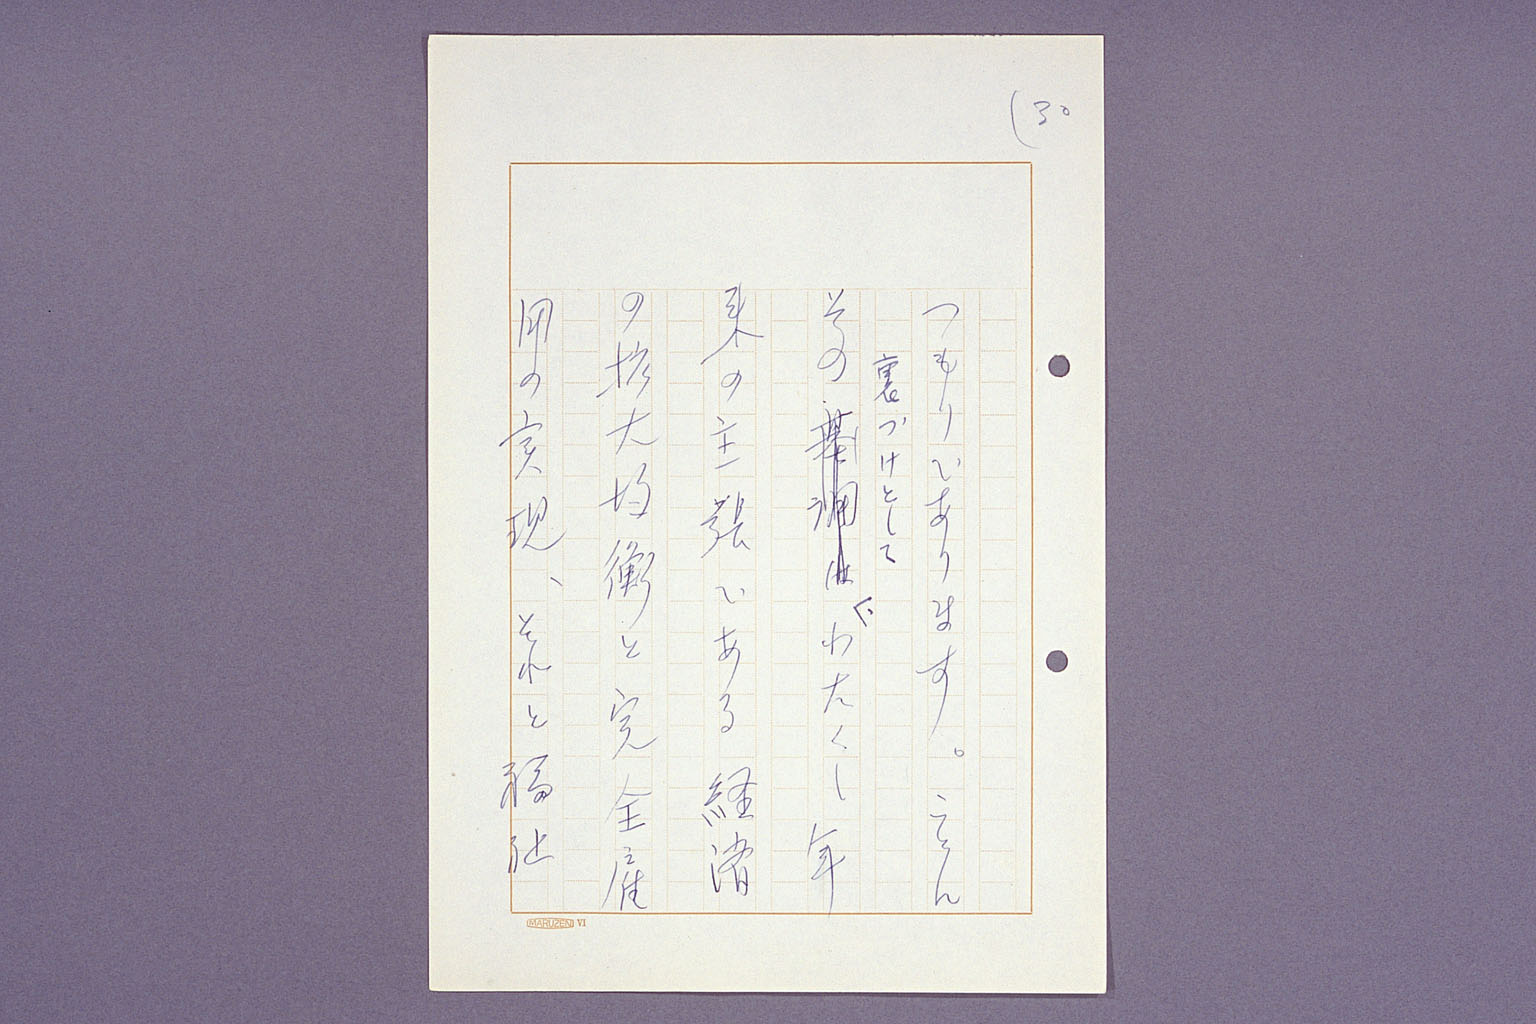 (30
つもりであります。
裏づけとして
その基調は わたくし年
来の主張である経済
の拡大均衡と完全雇
用の実現、それと福祉
MARUZEN VI